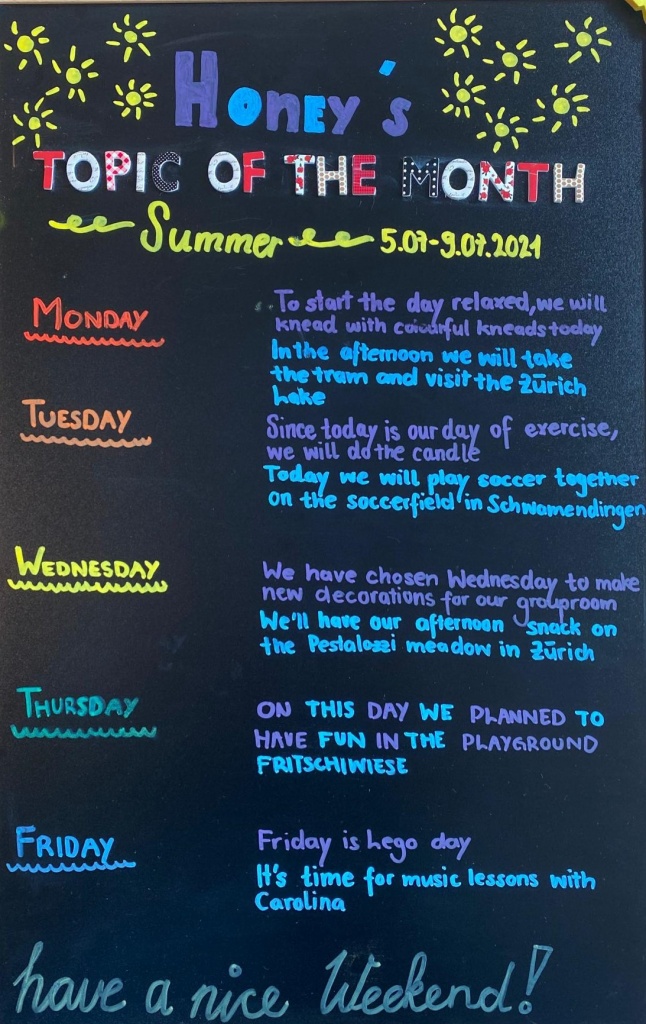 Honey's
TOPIC OF THE MONTH
Summer 5.07-9.07.2021
MONDAY
To start the day relaxed, we will
knead with colourful kneads today
In the afternoon we will take
the tram and visit the Zürich
Lake
TUESDAY
Since today is our day of exercise,
we will do the candle
Today we will play soccer together
on the soccerfield in Schwamendingen
WEDNESDAY
We have chosen Wednesday to make
new decorations for our grouproom
We'll have our afternoon snack on
the Pestalozzi meadow in Zürich
THURSDAY
ON THIS DAY WE PLANNED TO
HAVE FUN IN THE PLAYGROUND
FRITSCHIWIESE
FRIDAY
Friday is Lego day
It's time for music lessons with
Carolina
have a nice Weekend!